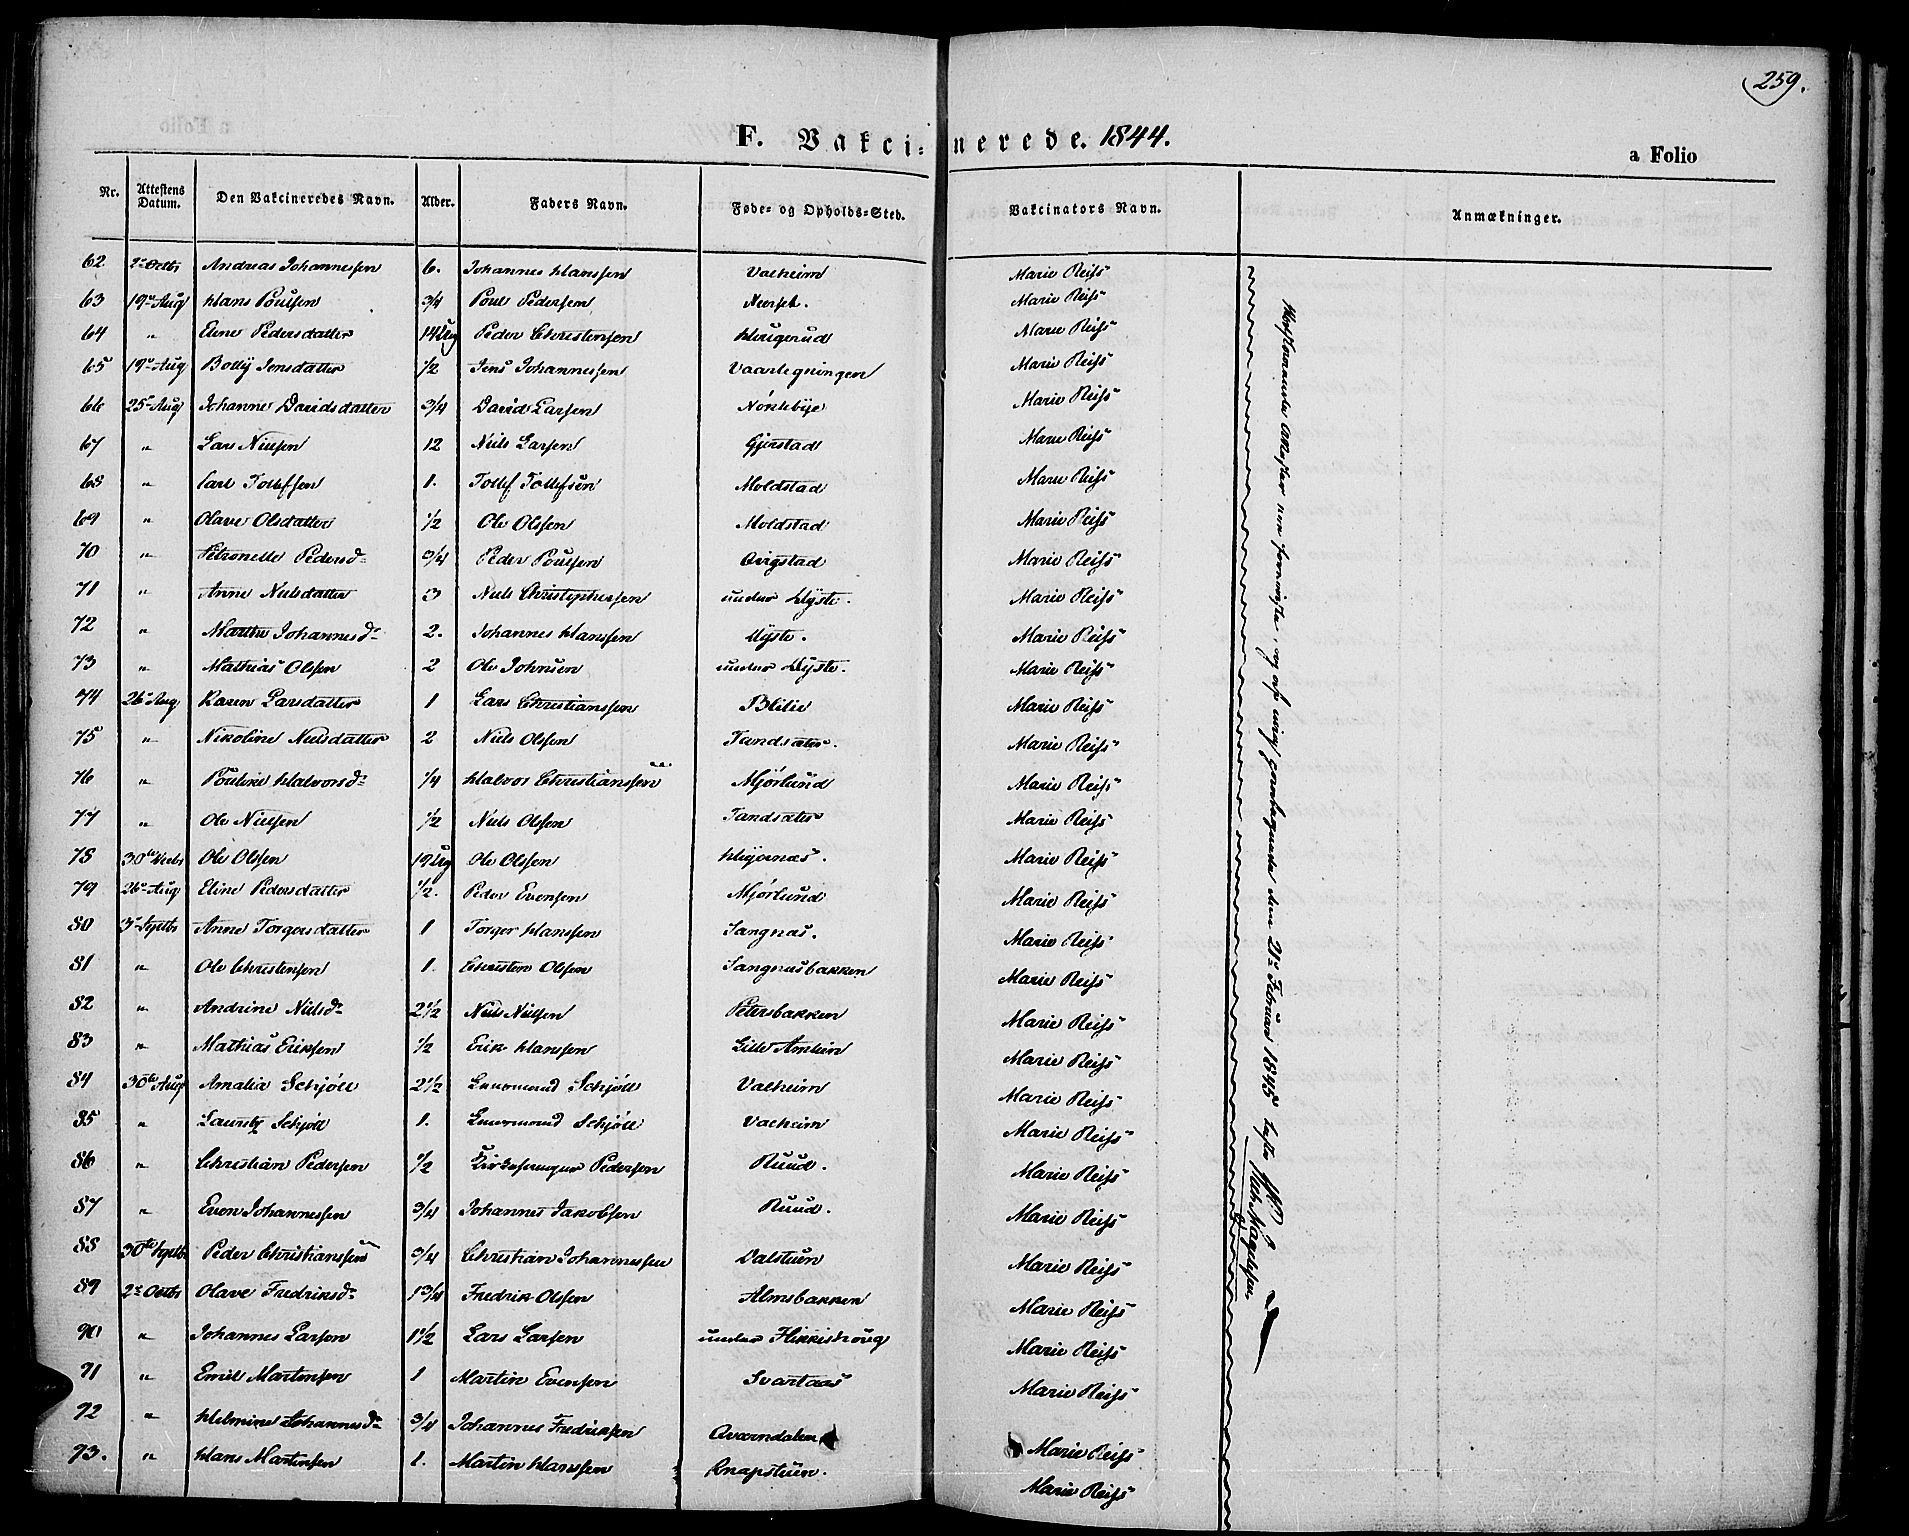 259.
F. Vakcinerede. 1844.
a Folio
Nr. Attestens Datum. Den Vakcineredes Navn. Alder. Faders Navn. Føde- og Opholds-Sted. Vakcinators Navn. Anmækninger.
62 2. Octbr Andreas Johannessen 6. Johannes Hanssen Valheim Marie Reiss
63 19. Aug Hans Poulsen 3/4 Poul Pedersen Nerset. Marie Reiss
64 " Eline Pedersdatter 14 Ug Peder Christensen Haugerud Marie Reiss
65 19. Aug Bolly Jensdatter 1/2 Jens Johannessen Marie Reiss
66 25. Aug Johanne Davidsdatter 3/4 David Larsen Nöklebye Marie Reiss
67 " Lars Nielsen 12 Niels Larsen Gjerstad Marie Reiss
68 " Carl Tollefsen 1. Tollef Tollefsen Moldstad Marie Reiss
69 " Olave Olsdatter 1/2 Ole Olsen Moldstad Marie Reiss
70 " Petronelle Pedersd. 3/4 Peder Poulsen Marie Reiss
71 " Anne Nielsdatter 3 Niels Christophersen under Marie Reiss
72 " Marthe Johannesd. 2. Johannes Hanssen Marie Reiss
73 " Mathias Olsen 2 Ole Johnsen under Marie Reiss
74 26. Aug Karen Larsdatter 1 Lars Christianssen Blilie Marie Reiss
75 " Nikoline Nielsdatter 2 Niels Olsen Tandsæter. Marie Reiss
76 " Pouline Halvorsd. 1/4 Halvor Christianssen Mjörlund Marie Reiss
77 " Ole Nielsen 1/2 Niels Olsen Tandsæter Marie Reiss
78 30te Ole Olsen 19 Ug Ole Olsen Marie Reiss
79 26. Aug Eline Pedersdatter 1/2. Peder Evensen Mjörlund Marie Reiss
80 3. Septbr Anne Torgersdatter 1 Torger Hanssen Sangnæs. Marie Reiss
81 " Ole Christensen 1. Christen Olsen Sangnæsbakken Marie Reiss
82 " Andrine Nielsd. 2 1/2 Niels Nielsen Petersbakken Marie Reiss
83 " Mathias Eriksen 1/2 Erik Hanssen Lille Amlien Marie Reiss
84 30te Aug Amalia Schjöll 2 1/2 Schjöll Valheim Marie Reiss
85 " Lauritz Schjöll 1. Schjöll Valheim Marie Reiss
86 " Christian Pedersen 1/2 Kirkesanger Pedersen Ruud. Marie Reiss
87 " Even Johannessen 3/4 Johannes Jakobsen Ruud. Marie Reiss
88 30te Septbr Peder Christianssen 3/4 Christian Johannessen Dalstuen Marie Reiss
89 2. Octbr Olave Fredriksd. 1 3/4 Fredrik Olsen Almsbakken Marie Reiss
90 " Johannes Larsen 1 1/2 Lars Larsen under Marie Reiss
91 " Emil Martinsen 1 Martin Evensen Svartaas Marie Reiss
92 " Helmine Johannesd. 3/4 Johannes Fredriksen Qværndalen Marie Reiss
93. " Hans Martinsen 1. Martin Hanssen Knapstuen. Marie Reiss
Attester den 21. Februar 1845
Magelssen